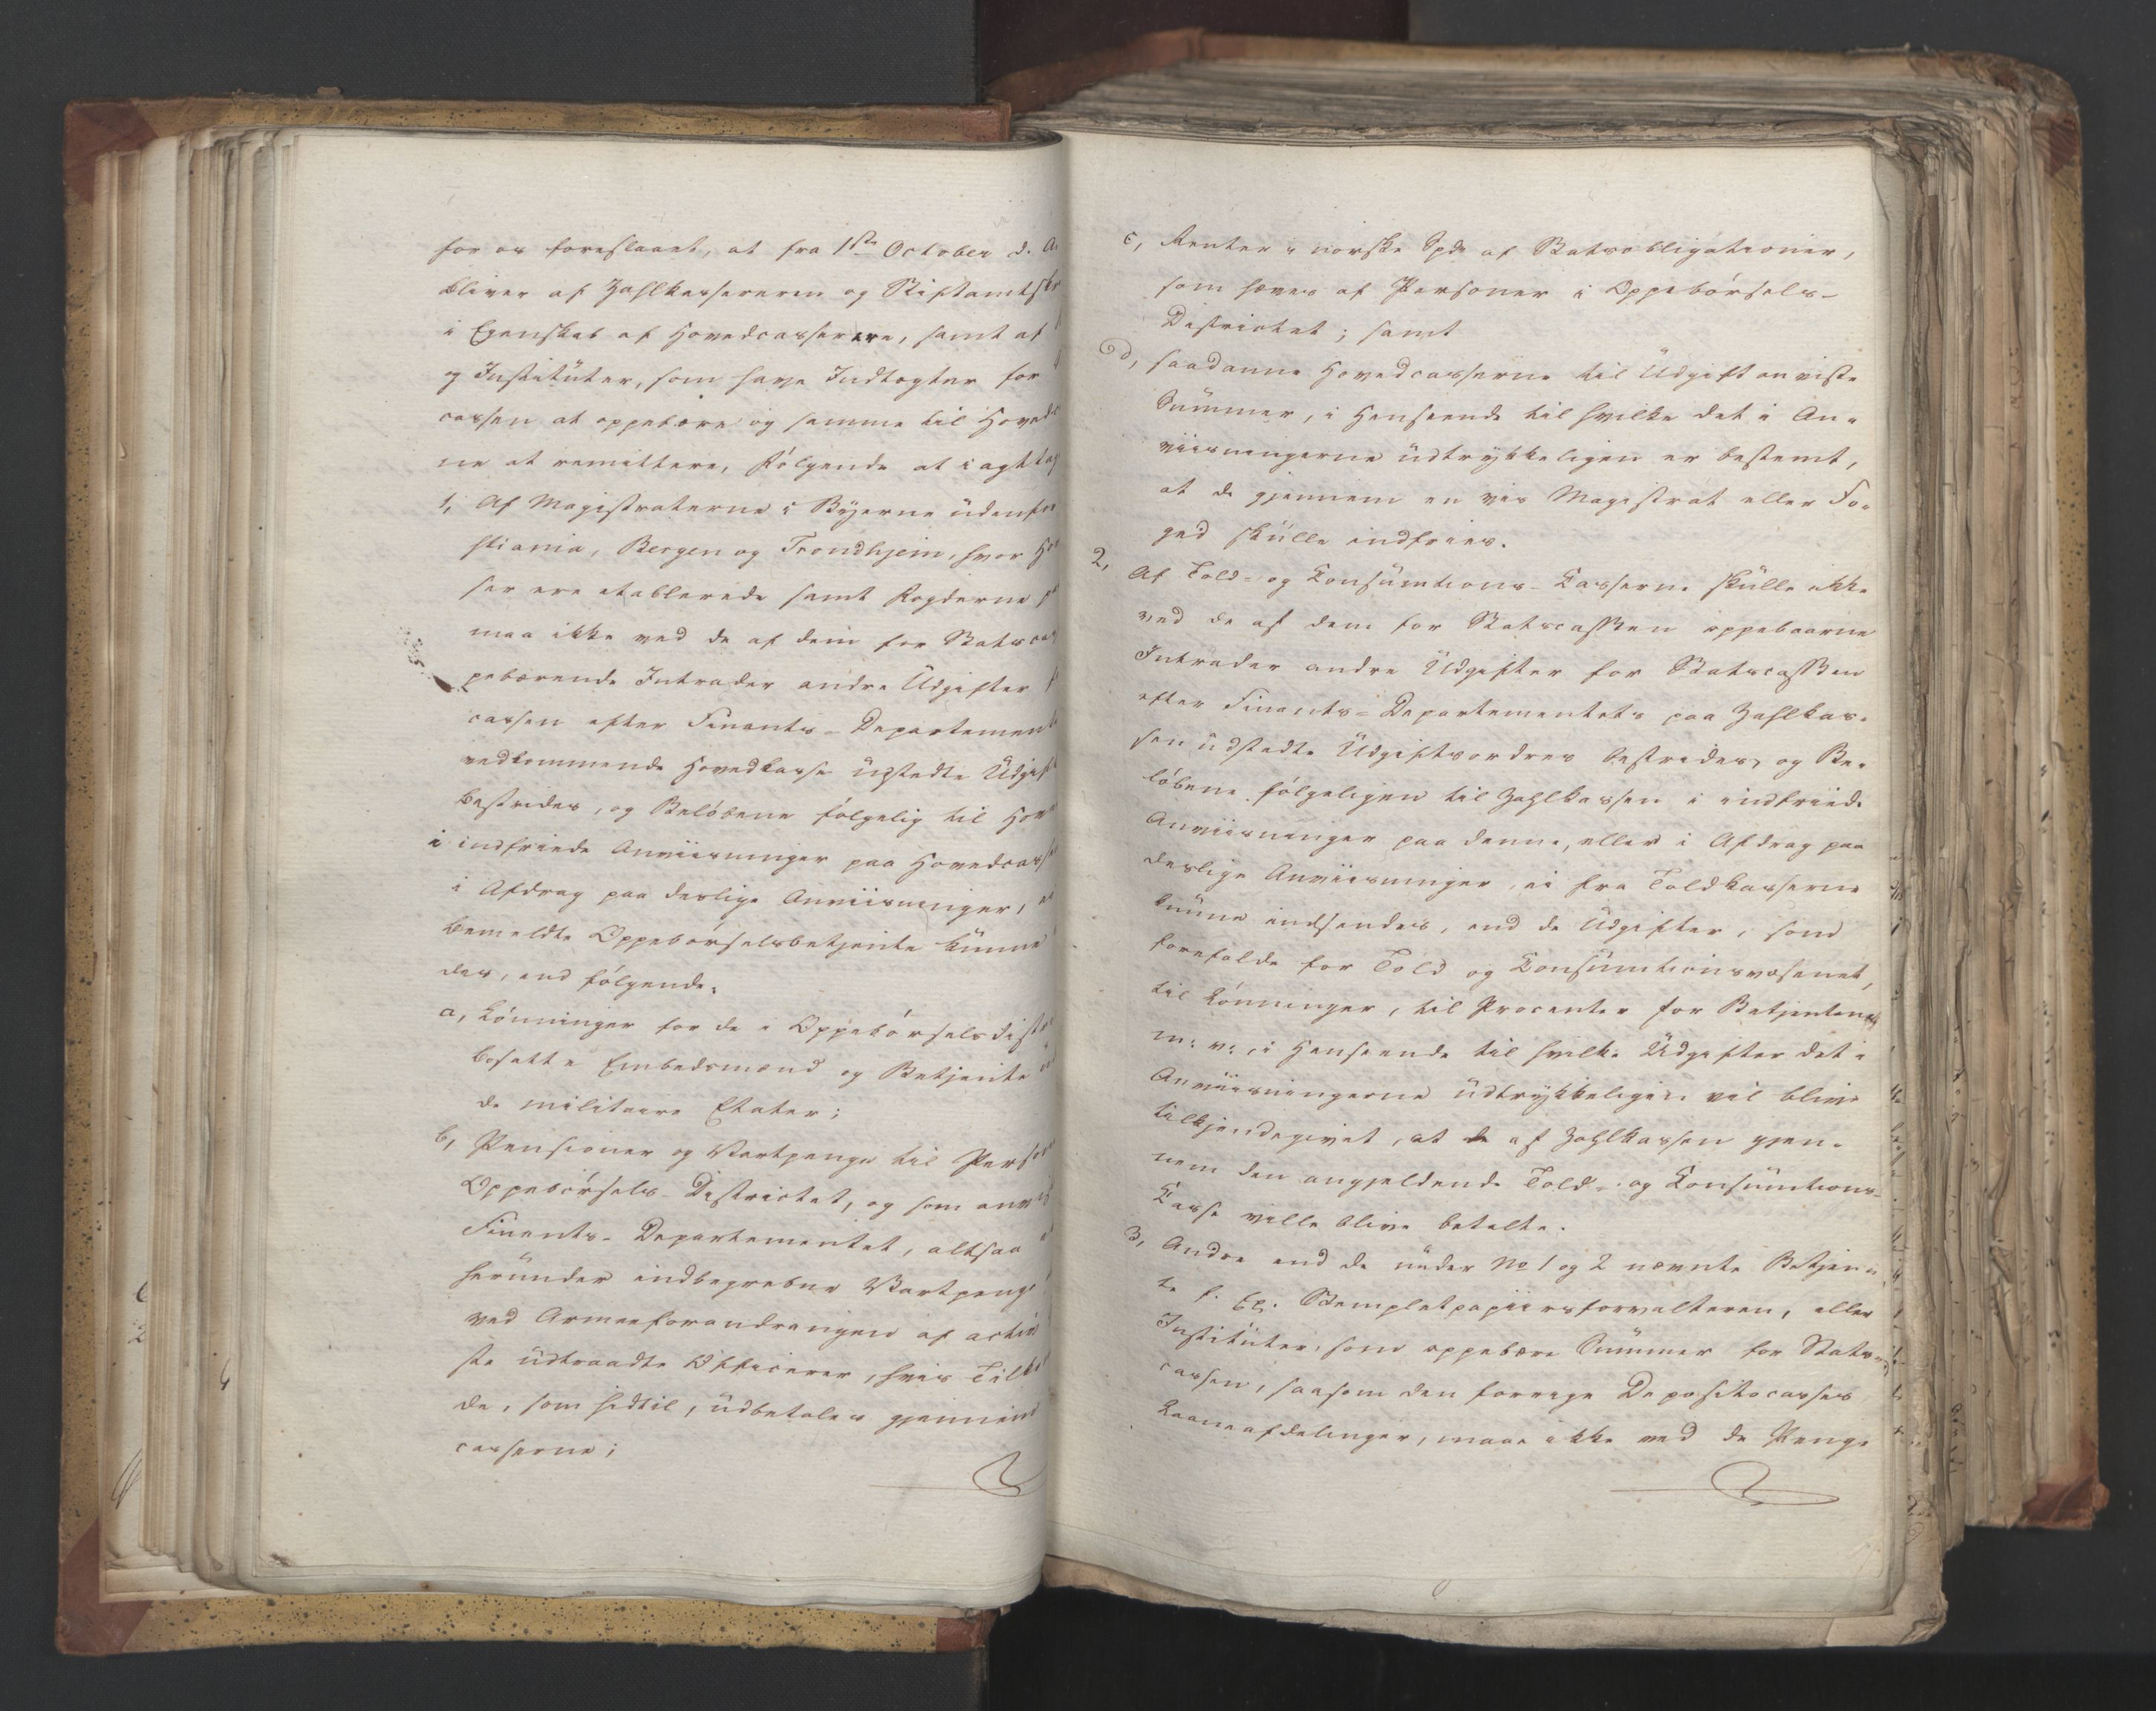 for os foreslaaet, at fra 1ste October d. A.
bliver af Zahlkassereren og Stiftamtskr
i Egenskab af Hovedcasserere, samt af
og Institüter, som have Indtægter for
cassen at oppebære og samme til Hovedc
ne at remittere, Følgende at iagttag
1, Af Magistraterne i Byerne üdenfor
stiania, Bergen og Trondhjem, hvor Ho
ser ere etablerede samt Fogderne
maa ikke ved de af dem for Statscas
pebærende Intrader andre Üdgifter
cassen efter Finants-Departement
vedkommende Hovedkasse üdstedte Üdgift
bestrides, og Beløbene følgelig til Hov
i indfriede Anviisninger paa Hovedcass
i Afdrag paa deslige Anviisninger,
bemeldte Oppebørselsbetjente künne
des, end følgende.
a, Lønninger for de i Oppebørselsdist
bosatte Embedsmænd og Betjente
de militaire Etater;
b, Pensioner og Vartpenge til Person
Oppebørsels-Districtet, og som anvi
Finants-Departementet, altsaa
heründer indbegrebne Vartpenge
ved Armeeforandringen af activ
ste üdtraadte Officerer, hvis Tilk
de, som hidtil, üdbetales gjennem
casserne;
c, Renter i norske Spd af Statsobligationer,
som hæves af Personer i Oppebørsels-
Districtet; samt
d, saadanne Hovedcasserne til Üdgift anviste
Sümmer, i Henseende til hvilke det i An-
viisningerne üdtrykkeligen er bestemt,
at de gjennem en vis Magistrat eller Fo-
ged skülle indfries.
2,
Af Told- og Consümtions-Casserne skülle ikke
ved de af dem for Statscassen oppebaarne
Intrader andre Üdgifter for Statscassen
efter Finants-Departementets paa Zahlkas-
sen üdstedte Üdgiftsordres bestrides, og Be-
løbene følgeligen til Zahlkassen i indfriede
Anviisninger paa denne, eller i Afdrag paa
deslige Anviisninger, ei fra Toldkasserne
künne indsendes, end de Üdgifter, som
forefalde for Told og Consümtionsvæsenet,
til Lønninger, til Procenter for Betjentene
m: v:, i Henseende til hvilke Üdgifter det i
Anviisningerne üdtrykkeligen vil blive
tilkjendegivet, at de af Zahlkassen gjen-
nem den angjeldende Told- og Consümtions-
Casse ville blive betalte.
3, Andre end de ünder No 1 og 2 nævnte Betjen-
te f. Ex. Stempletpapiirsforvalteren, eller
Institüter, som oppebære Sümmer for Stats-
cassen, saasom den forrige Depositocasses
Laaneafdelinger, maae ikke ved de Penge